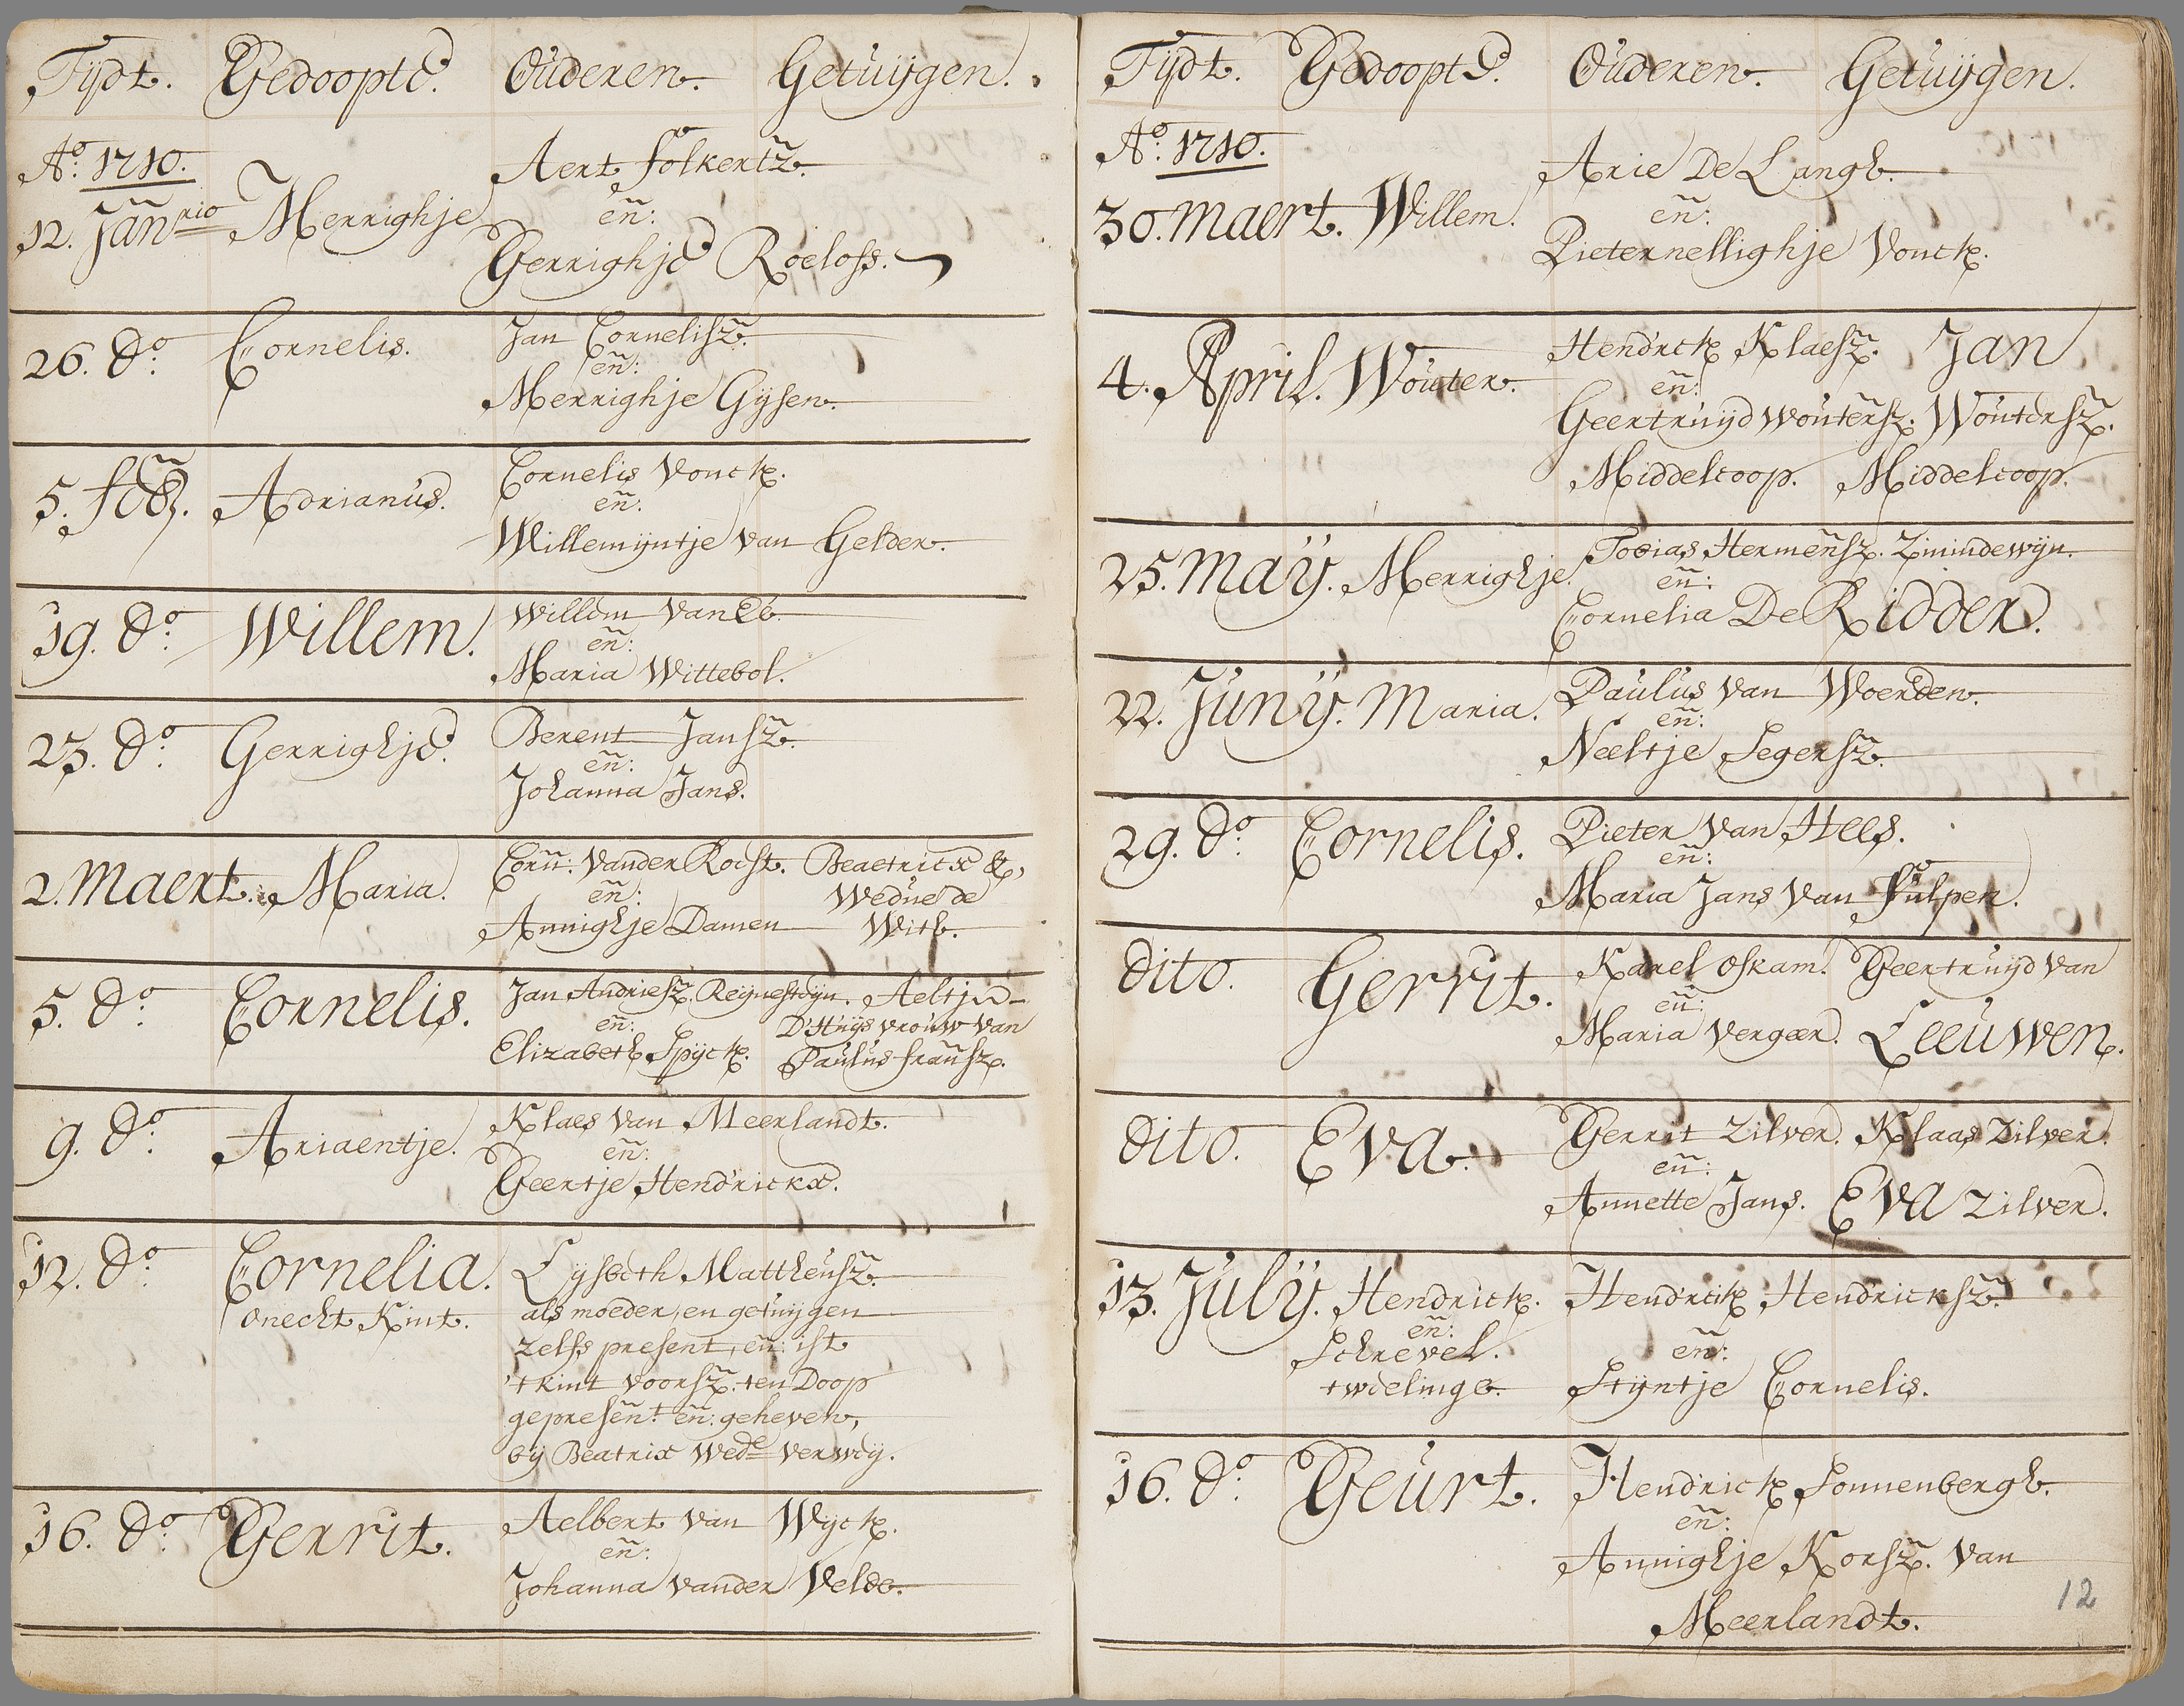 Tijdt. Gedoopte. Ouderen. Getuijgen.
Ao. 1710.
12. Jan̅rio Merrighje Aert folkertz̅.
en̅:
Gerrighje Roelofs.
26. do. Cornelis. Jan Cornelisz̅.
en̅:
Merrighje Gijsen.
5. feb̅. Adrianus. Cornelis Vonck.
en̅:
Willemijntje van Gelder.
19. do. Willem. Willem van Ee.
en̅:
Maria Wittebol.
23. do. Gerrighje. Berent Jansz̅.
en̅:
Johanna Jans.
2. Maert. Maria. Corn̅: vander Roest. Beaetricx &,
en̅: Wedue de
Annighje Damen With.
5. do. Cornelis. Jan Andriesz̅. Reijnesteijn. Aeltje
en̅: D'Huijs vrouw van
Elizabeth Spijck. Paulus fran̅sz.
9. do. Ariaentje. Klaes van Meerlandt.
en̅:
Geertje Hendrickx.
12. do. Cornelia. Lijsbeth Mattheusz̅.
onecht Kint. als moeder, en getuijgen
zelfs present, en̅: ist
't kint voorsz̅. ten Doop
gepresen̅t. en̅: geheven,
bij Beatrix Wede Verweij.
16. do. Gerrit. Aelbert van Wijck.
en̅:
Johanna vander Velde.
Tijdt. Gedoopte. Ouderen. Getuijgen.
Ao. 1710.
30. Maert. Willem. Arie De Langh.
en̅:
Pieternellighje Vonck.
4. April. Wouter. Hendrick Klaesz̅. Jan
en̅:
Geertruijd Wouter̅sz. Woutersz̅.
Middelcoop. Middelcoop.
25. Maÿ. Merrighje. Tobias Hermen̅sz. Zinindewijn.
en̅:
Cornelia De Ridder.
22. Junÿ. Maria. Paulus van Woerden.
en̅:
Neeltje Segersz̅.
29. do. Cornelis. Pieter van Hees.
en̅:
Maria Jans van Fulpen.
dito. Gerrit. Karel oskam. Geertruijd van
en̅:
Maria Vergeer. Leeuwen.
dito. Eva. Gerrit Zilver. Klaas Zilver.
en̅:
Annette Jans. Eva Zilver.
13. Julÿ. Hendrick. Hendrick Hendricksz̅.
en̅:
Schrevel. en̅:
twelinge. Stijntje Cornelis.
16. do. Geurt. Hendrick Sonnenbergh.
en̅:
Annighje Korsz̅. van
Meerlandt.
12